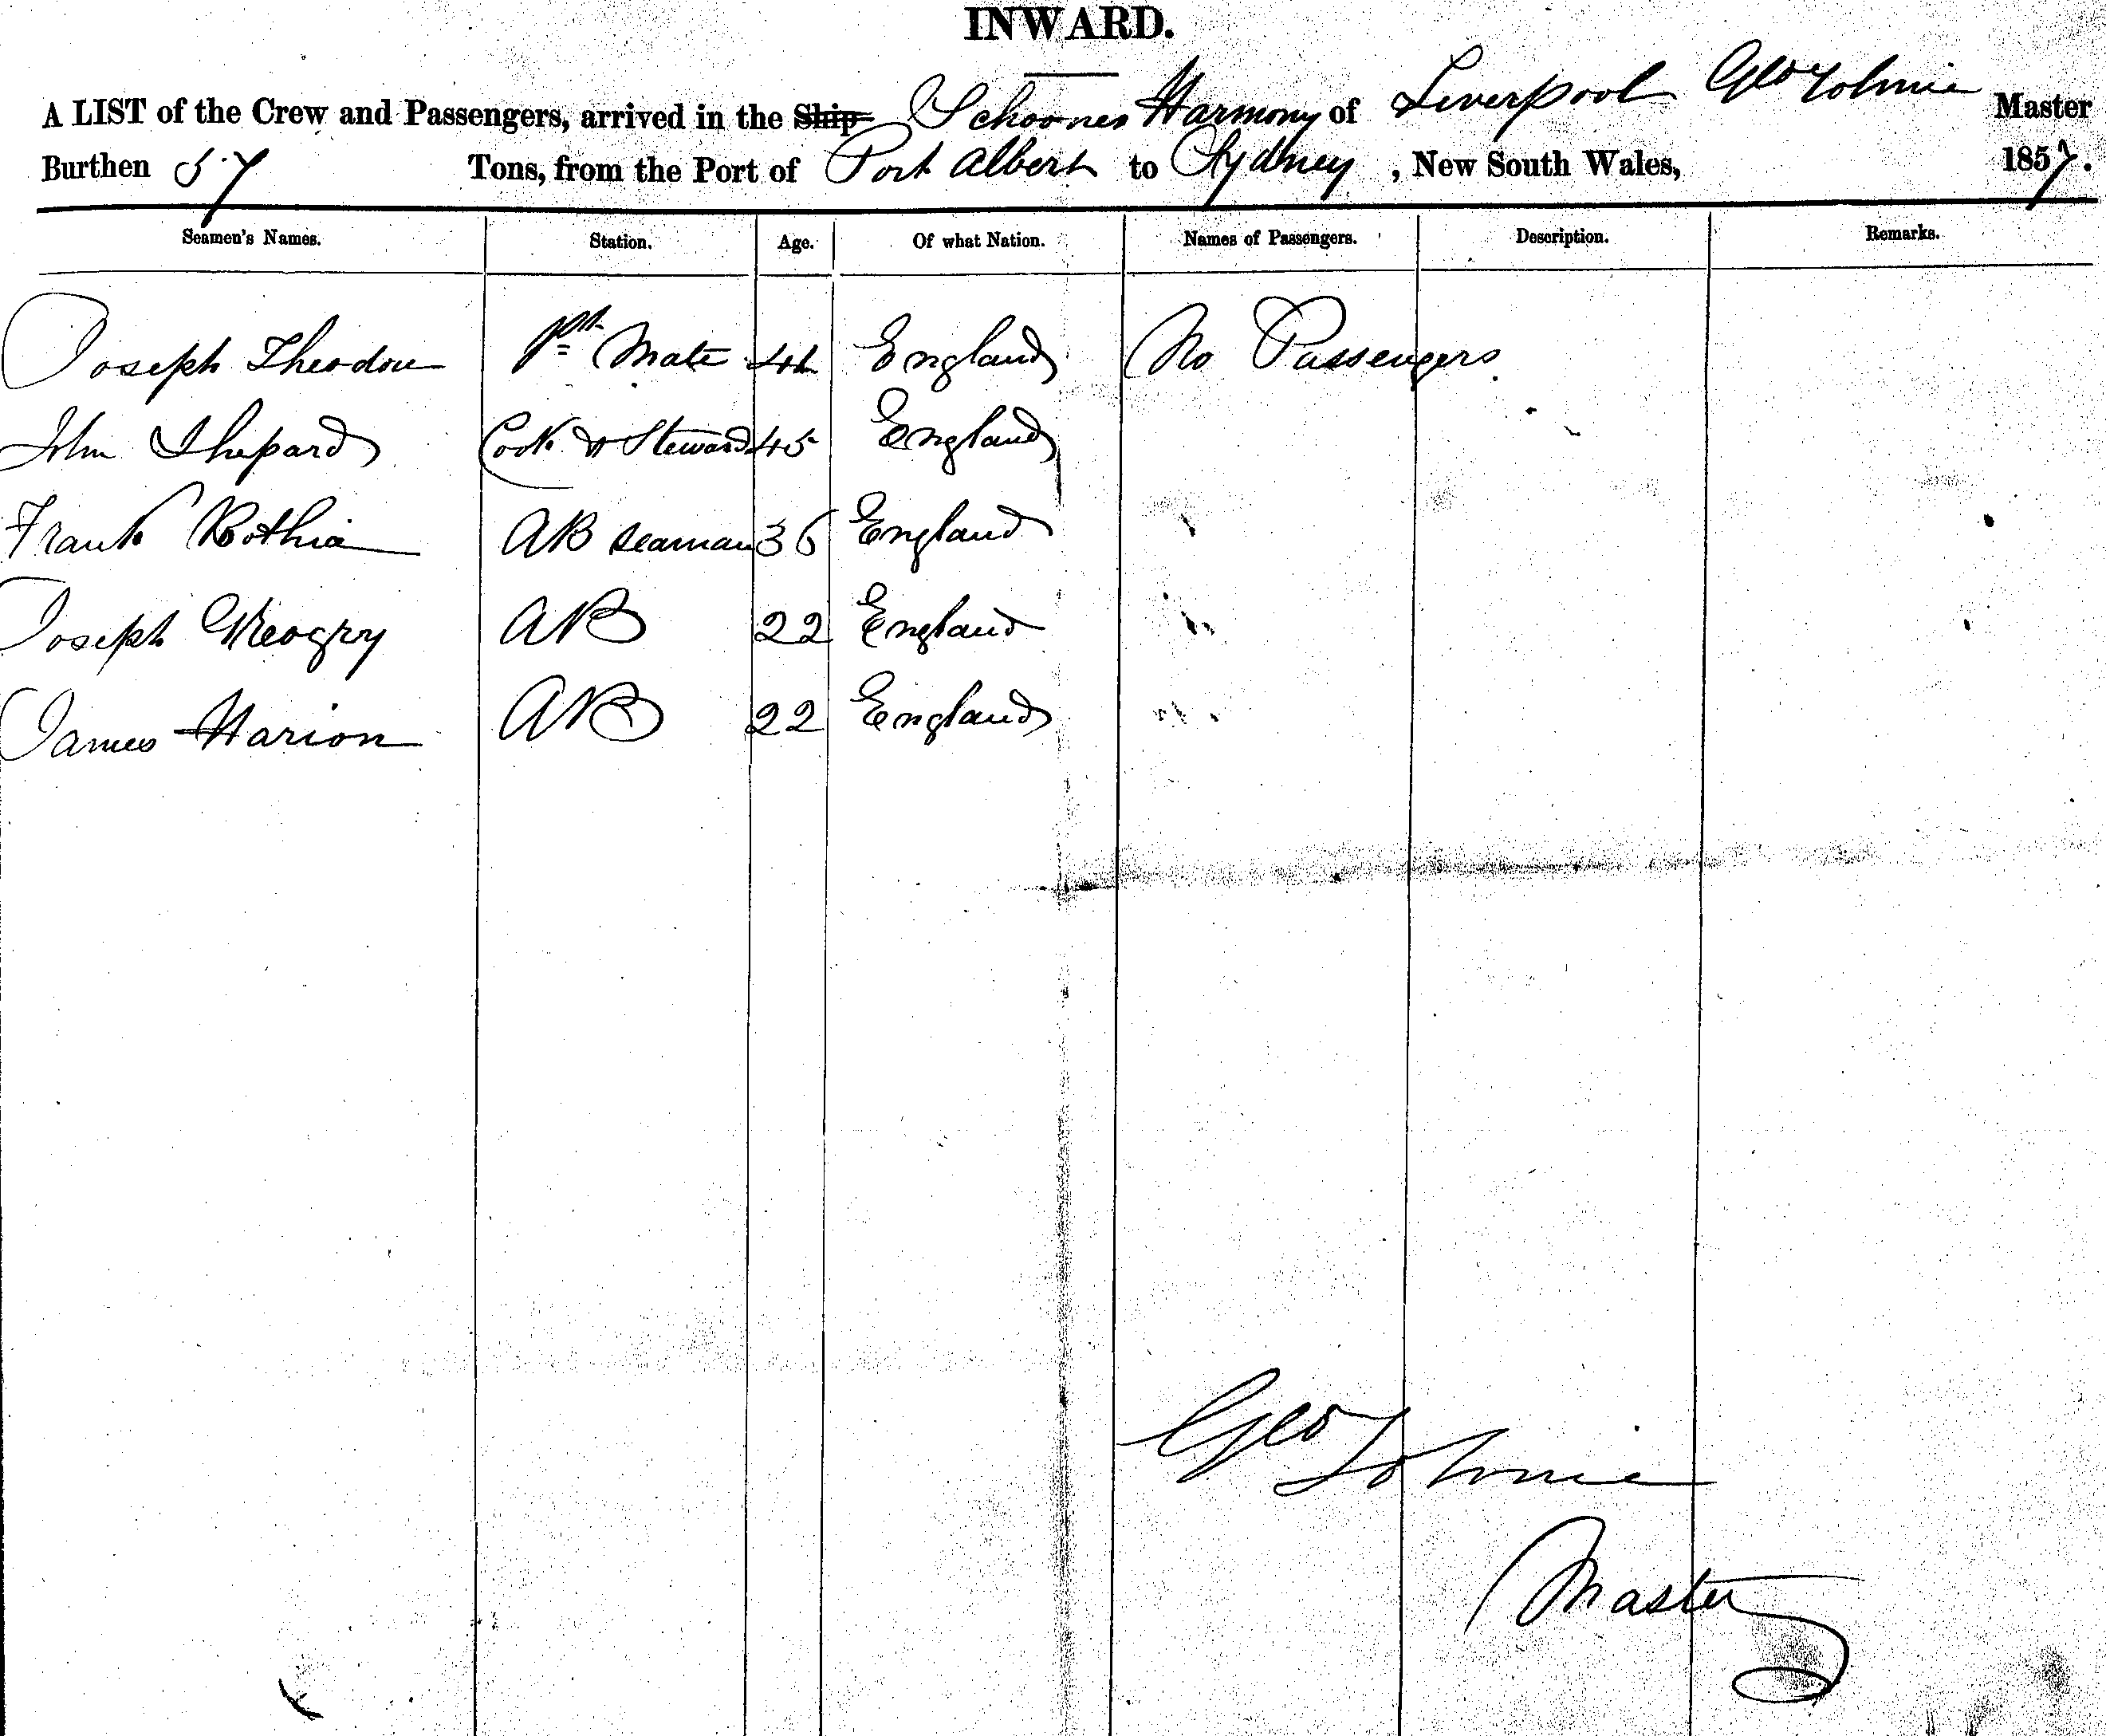 INWARD.
A LIST of the Crew and Passengers, arrived in the Ship Schooner Harmony of Liverpool Geo Tolmie Master
Burthen 57 Tons, from the Port of Port Albert to Sydney, New South Wales, 1857.
Seamen's Names. Station. Age. Of what Nation. Names of Passengers. Description. Remarks.
Joseph Mate England No Passengers.
John Shepard Cook & Steward 45 England
Frank AB seaman 36 England
Joseph AB 22 England
James Harion AB 22 England
Geo Tolmie
Master